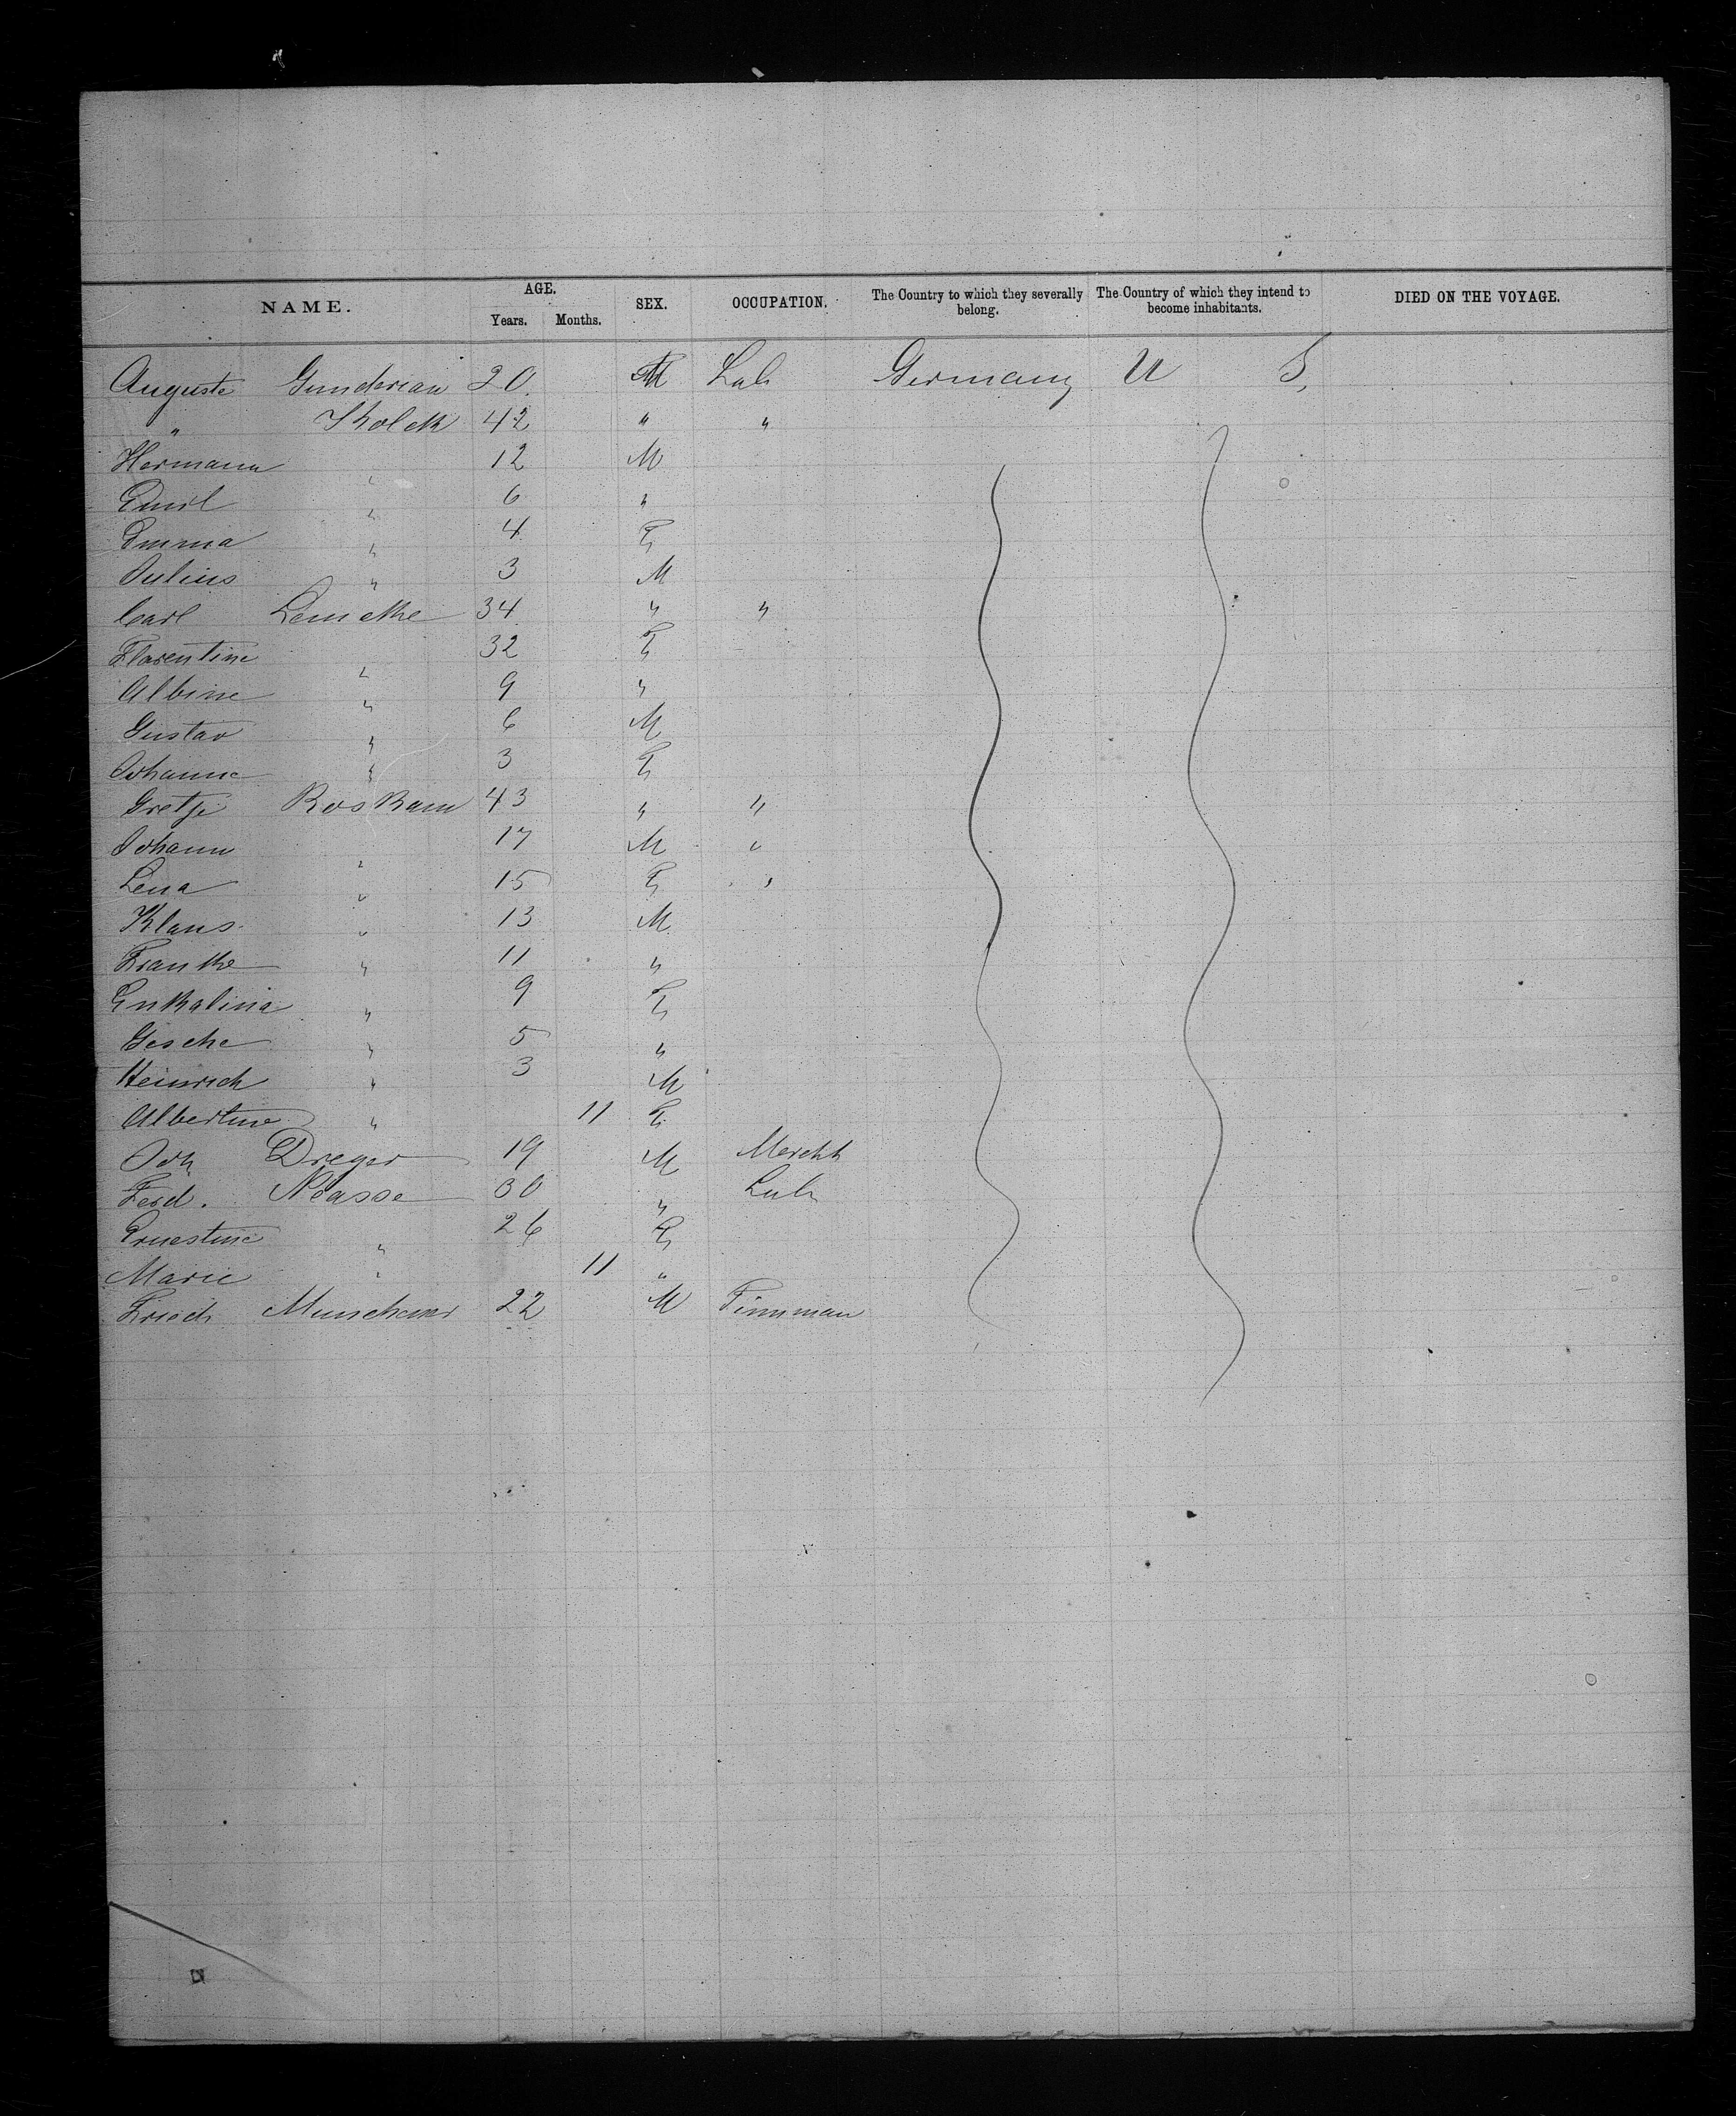 NAME. AGE. SEX. OCCUPATION. The Country to which they severally belong. The Country of which they intend to become inhabitants. DIED ON THE VOYAGE.
Years. Months.
Auguste Gunderian 20. Lab Germany U S,
" 42 " "
Hermann " 12 M
Emil " 6 "
Emma " 4 F
Julius " 3 M
Carl Lemcke 34 " "
Florentine " 32 F
Albine " 9 "
Gustav " 6 M
Johanne " 3 F
Gretje Roskam 43 " "
Johann " 17 M "
Lena " 15 F "
Klaus " 13 M
Franke " 11 "
Enkalina " 9 F
Gesche " 5 "
Heinrich " 3 M
Albertine " 11 F
Joh Dreger 19 M Mercht
Ferd. 30 " Lab
Ernestine " 26 F
Marie " 11 "
Friedr 22 M